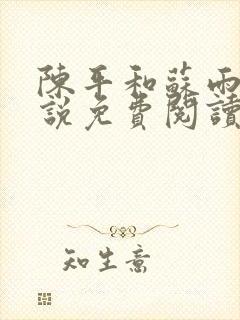 陳平和蘇雨
說免費閱讀
知生意